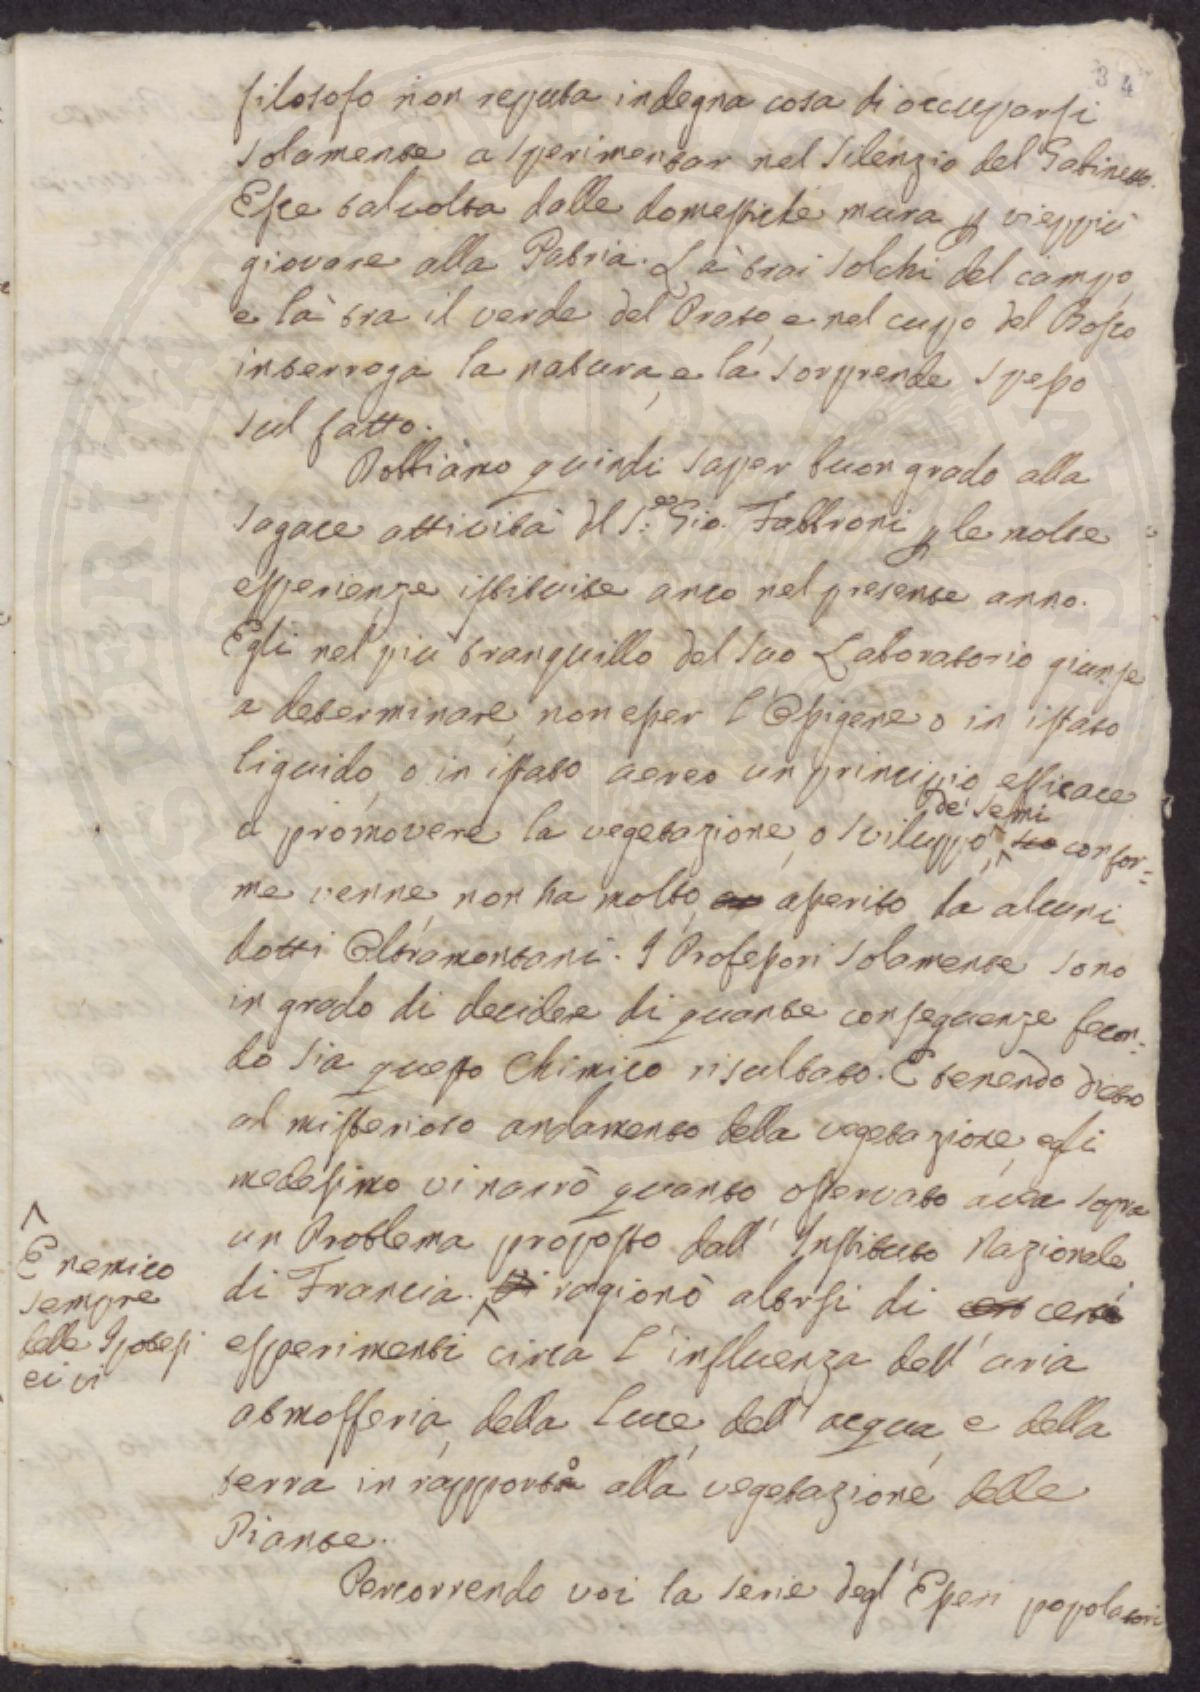 34
filosofo non reputa indegna cosa di occuparsi
solamente a sperimentar nel silenzio del Gabinetto.
Esce talvolta dalle domestiche mura p vieppiù
giovare alla Patria. Là trai solchi del campo,
e là tra il verde del Prato, e nel cupo del Bosco
interroga la natura, e la sorprende spesso
sul fatto.
Dobbiamo quindi saper buon grado alla
sagace attività del S.r Gio. Fabbroni p le molte
esperienze istituite anco nel presente anno.
Egli nel più tranquillo del suo Laboratorio giunse
a determinare, non esser l'Ossigene o in istato
liquido, o in istato aereo un principio efficace
de' semi
a promovere la vegetazione, o sviluppo, suo confor=
me venne non ha molto, asserito da alcuni
dotti Oltramontani. I Professori solamente sono
in grado di decidere di quante conseguenze fecon=
do sia questo Chimico risultato. E tenendo dietro
al misterioso andamento della vegetazione, egli
medesimo vi narrò quanto osservato avea sopra
un Problema proposto dall'Instituto Nazionale
di Francia. Vi ragionò altresi di cert certi
E nemico
sempre
delle Ipotesi
ei vi
esperimenti circa l'influenza dell'aria
atmosferia, della luce, dell'acqua, e della
terra in rapporto alla vegetazione delle
Piante.
Percorrendo voi la serie degl'Esseri popolatori